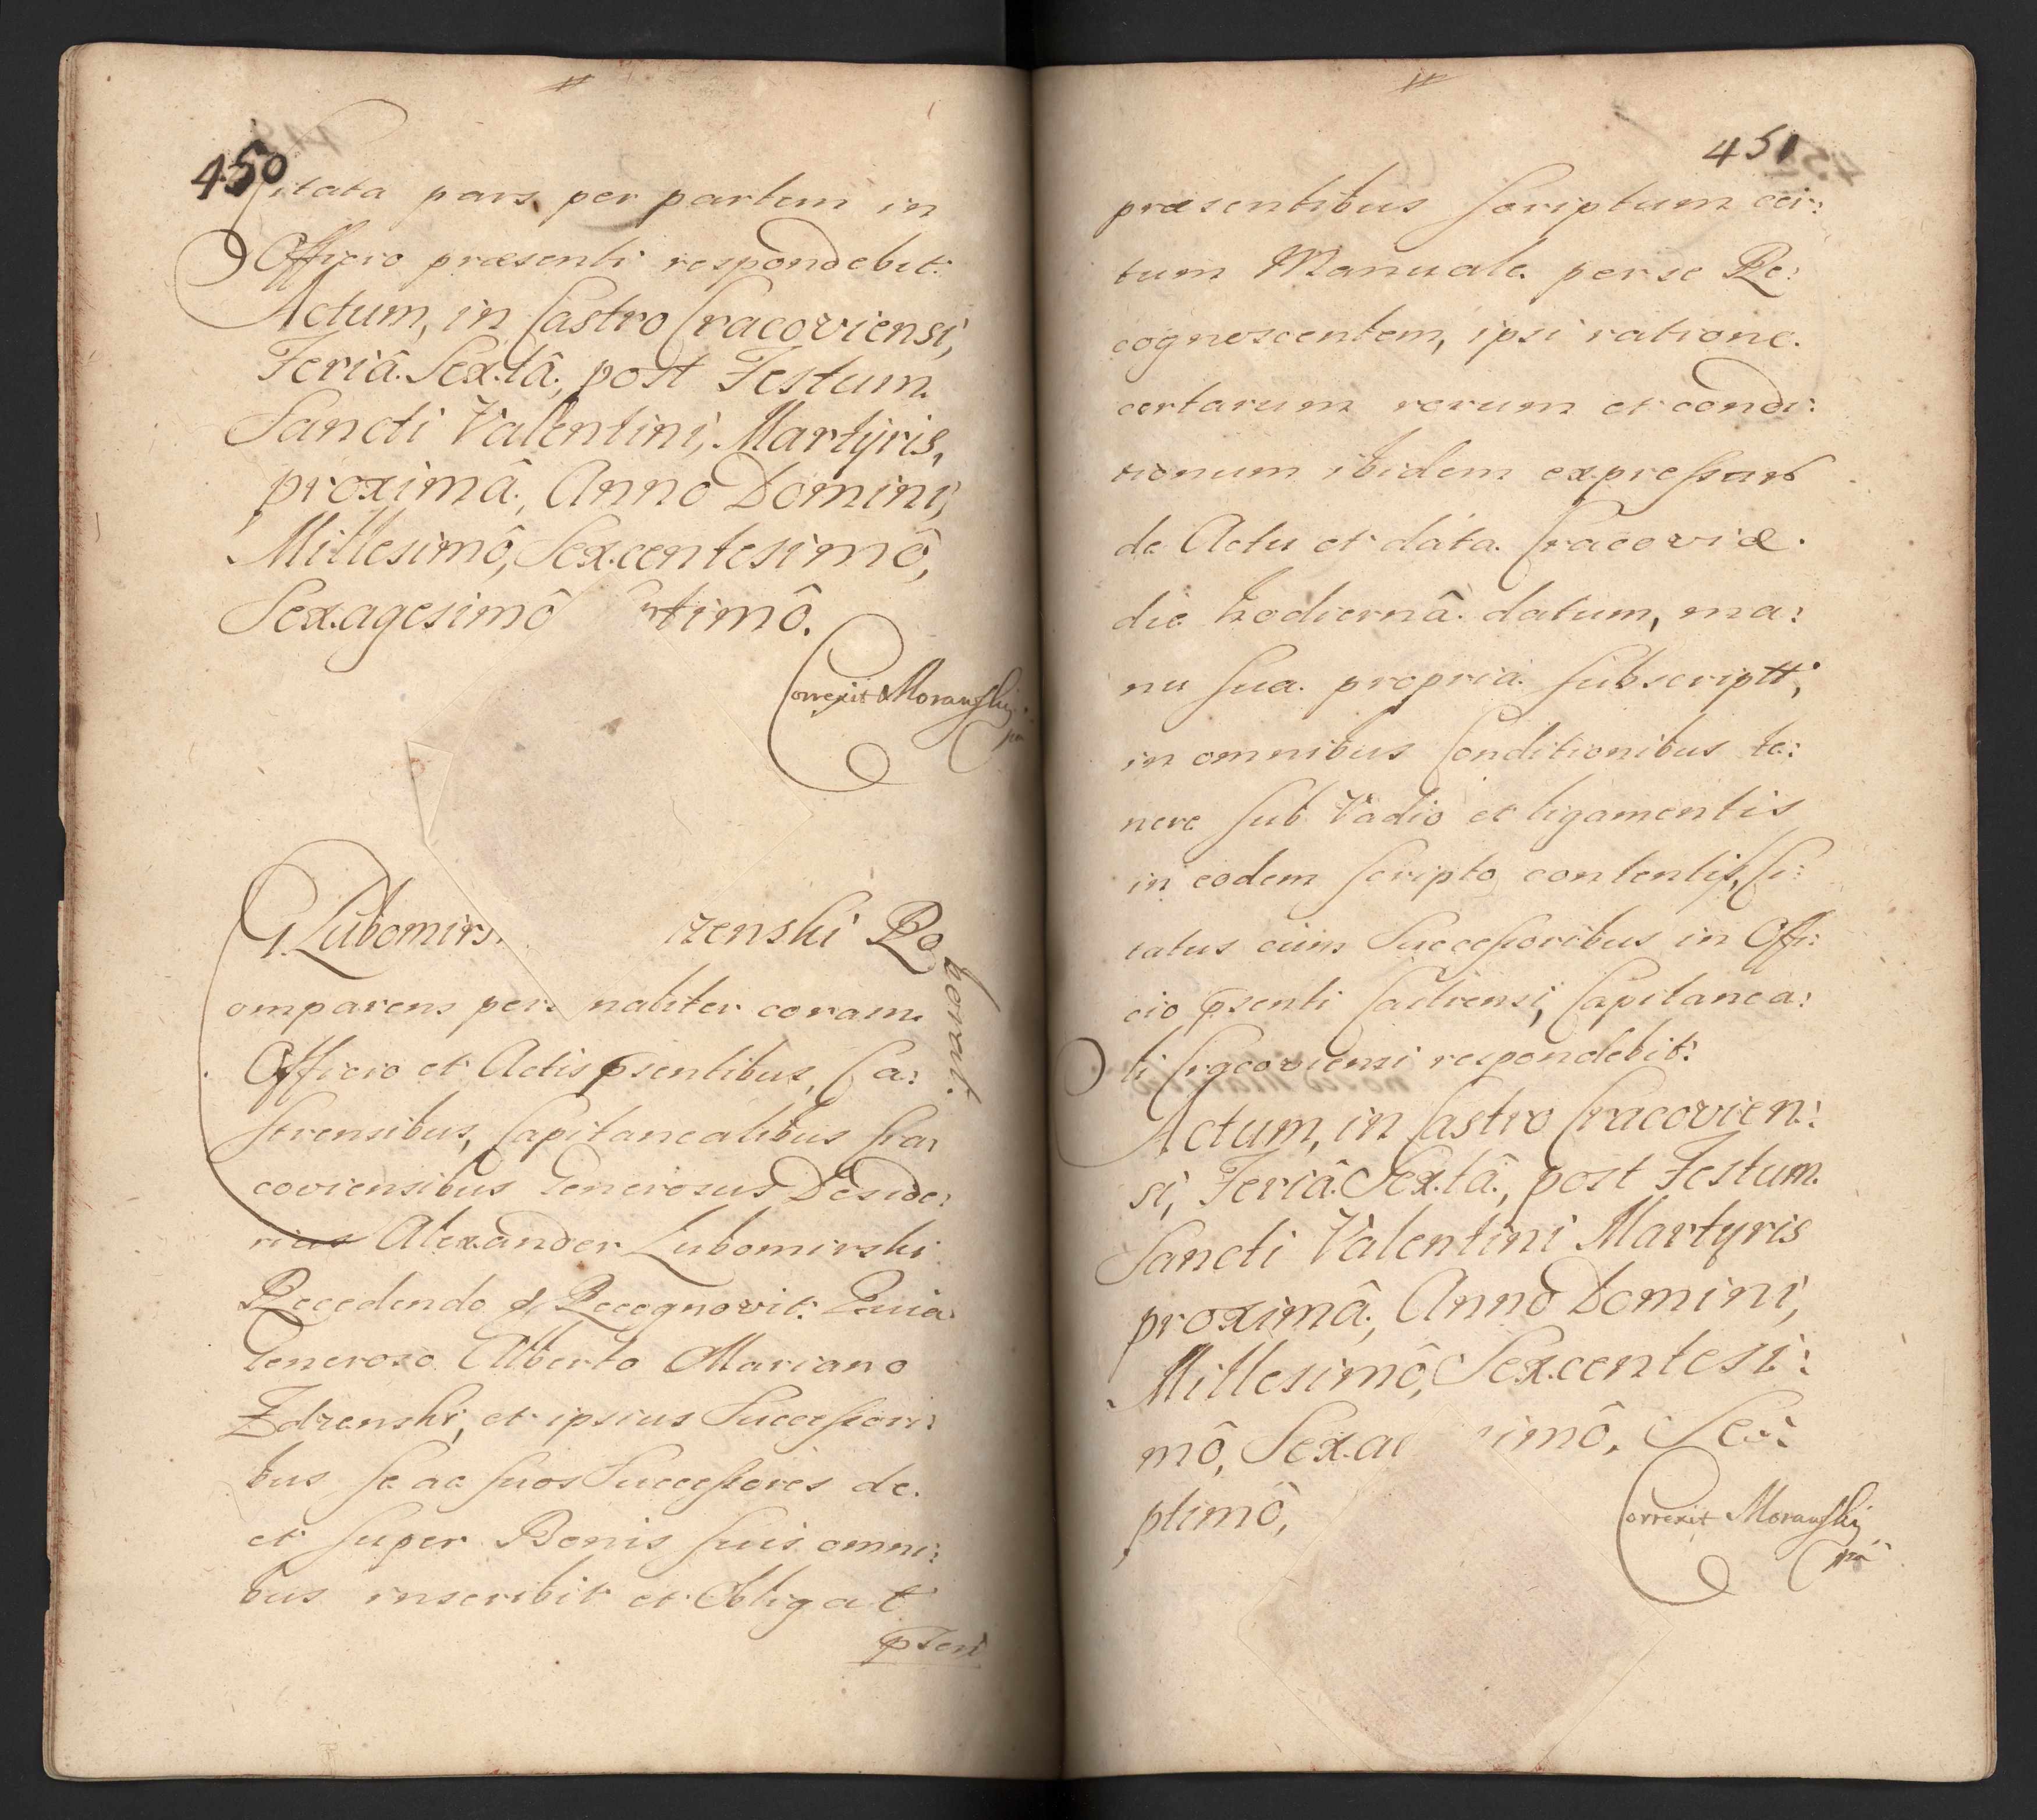 450
Citata pars per partem in
Officio præsenti respondebit.
Actum, in Castro Cracoviensi,
Feriâ Sextâ, post Festum
Sancti Valentini, Martÿris,
proximâ, Anno Domini,
Millesimô, Sexcentesimô,
Sexagesimô timô.
Correxit Moravski
G. Lubomirs zenski Ro
borat.
Comparens pers naliter coram
Officio et Actis psentibus, Ca:
strensibus, Capitanealibus Cra
coviensibus Generosus Deside:
rius Alexander Lubomirski
Recedendo & Recognovit. Quia
Generoso Alberto Mariano
Zdzenski, et ipsius Successori:
bus se ac suos Successores de
et super Bonis suis omni:
bus inscribit et Obligat
psen
451
præsentibus scriptum cer:
tum Manuale per se Re:
cognescentem, ipsi ratione
certarum rerum et condi:
tionum ibidem expressarum
de Actu et data Cracoviæ
die hodiernâ datum, ma:
nu sua propria subscriptt,
in omnibus Conditionibus te:
nere sub Vadio et ligamentis
in eodem scripto contentis, Ci:
tatus cum Successoribus in Offi:
cio psenti Castrensi, Capitanea:
li Cracoviensi respondebit.
Actum, in Castro Cracovien:
si, Feriâ Sextâ, post Festum
Sancti Valentini Martyris
proximâ, Anno Domini,
Millesimô, Sexcentesi:
mô, Sexa imô, Se:
ptimô,
Correxit Moravski